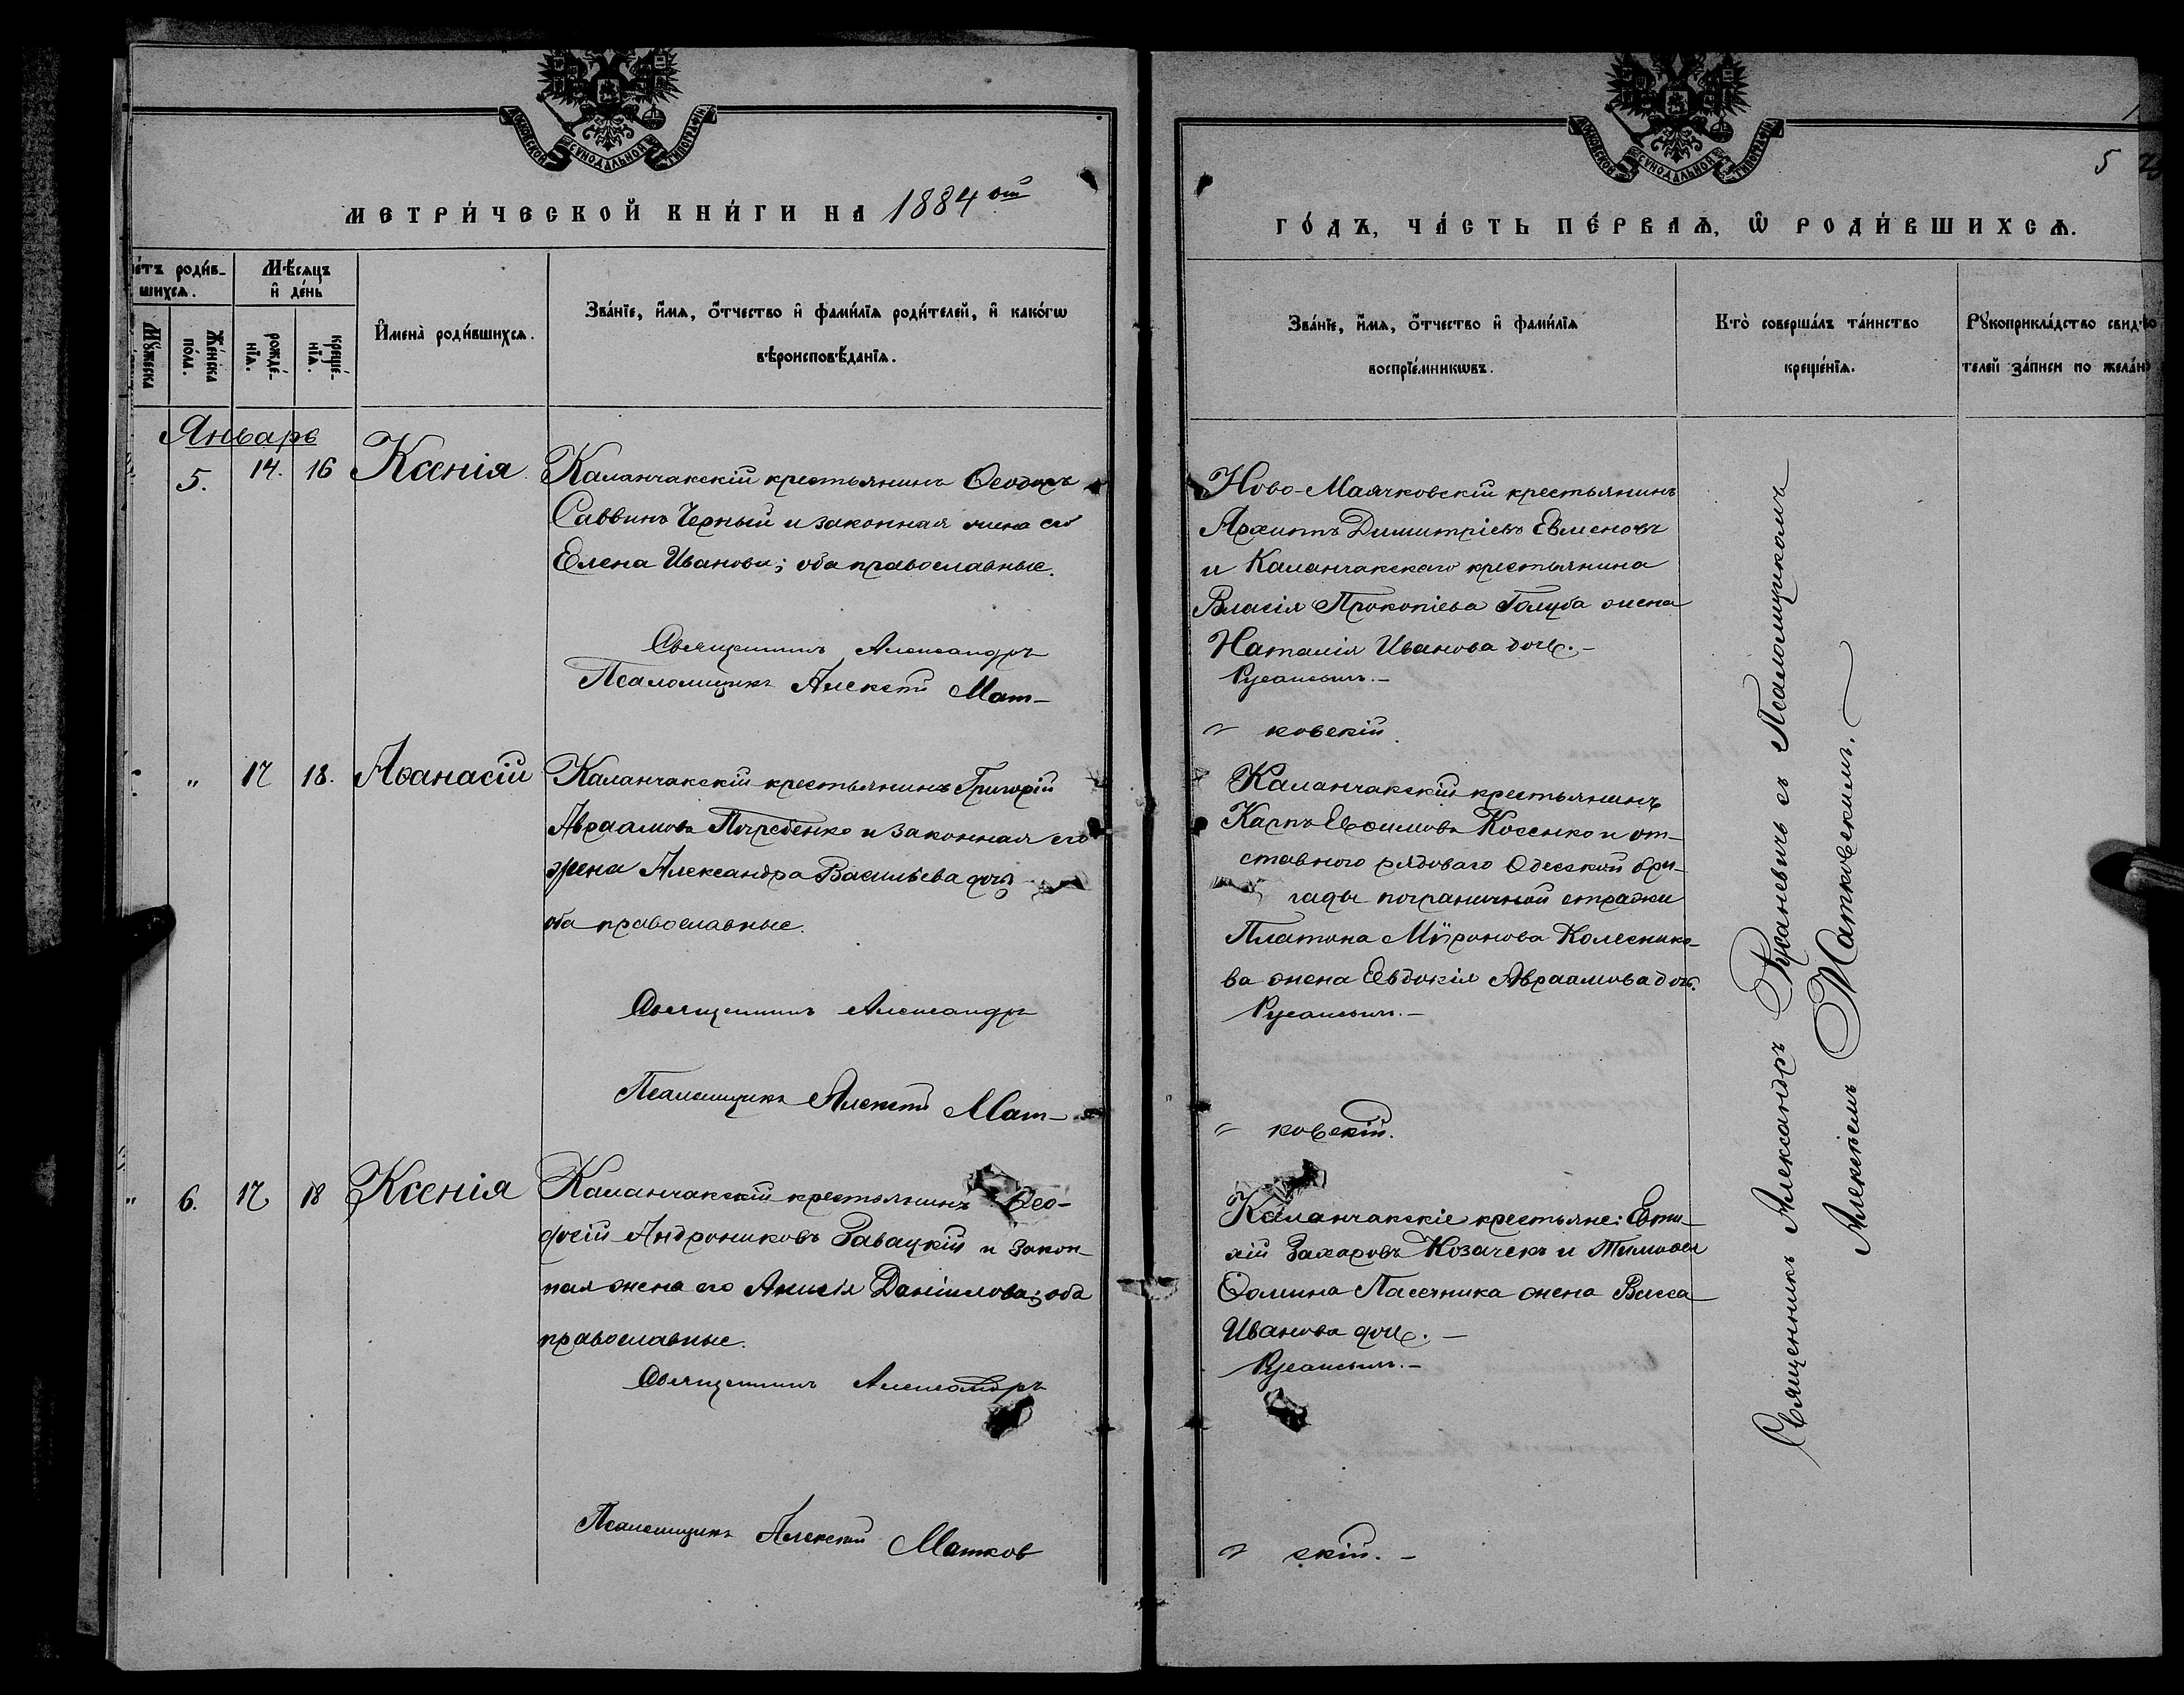 МОСКОВСКОЙ СУНОДАЛЬНОЙ ТИПОГРАФІИ
МЕТРИ́ЧЕСКОЙ КНИ́ГИ НА 1884 ой
е́тъ роди́в-
шихся.
Мѣ́сяцъ
и҆ де́нь
Мꙋ́жеска
Же́нска
по́ла.
рожде́-
нїя.
креще́-
нїя.
И҆мена̀ роди́вшихся.
Зва́нїе, и҆́мя, о҆́тчество и҆ фами́лїя роди́телей, и҆ како́гѡ
вѣроисповѣ́данїя.
Январь
5. 14. 16 Ксенія
Каланчакскій крестьянинъ Ѳеодоръ
Саввинъ Черный и законная жена его
Елена Иванова; оба православные.
Священникъ Александръ
Псаломщикъ Алексѣй Мат-
" 17 18. Аѳанасій
Каланчакскій крестьянинъ Григорій
Авраамовъ Погребенко и законная его
жена Александра Васильева дочь
оба православные.
Священникъ Александръ
Псаломщикъ Алексѣй Мат-
" 6. 17 18 Ксенія
Каланчакскій крестьянинъ Ѳео-
досій Андрониковъ Завацкій и закон-
ная жена его Анисія Даніилова; оба
православные.
Священникъ Александръ
Псаломщикъ Алексѣй Матков
МОСКОВСКОЙ СУНОДАЛЬНОЙ ТИПОГРАФІИ
5
ГО́ДЪ, ЧА́СТЬ ПЕ́РВАЯ, Ѡ҆ РОДИ́ВШИХСЯ.
Зва́нїе, и҆́мя, о҆́тчество и҆ фами́лїя
воспрїе́мникѡвъ.
Кто̀ соверша́лъ та́инство
креще́нїя.
Рꙋкоприкла́дство свидѣ-
телей за́писи по жела́нї
Ново-Маячковскій крестьянинъ
Архипъ Димитріевъ Евменовъ
и Каланчакскаго крестьянина
Власія Прокопіева Голуба жена
Наталія Иванова дочь.-
Русаневичъ.-
" ковскій.
Каланчакскій крестьянинъ
Карпъ Евѳимовъ Косенко и от-
ставного рядоваго Одесской бри-
гады пограничной стражи
Платона Миронова Колеснико-
ва жена Евдокія Авраамова дочь.
Русаневичъ.-
" ковскій.
Каланчакскіе крестьяне: Евти-
хій Захаровъ Козачекъ и Тимоѳея
Ѳомина Пасечника жена Васса
Иванова дочь.-
Русаневичъ.-
" скій.-
Священникъ Александръ Русаневичъ съ Псаломщикомъ
Алексѣемъ Матковскимъ.